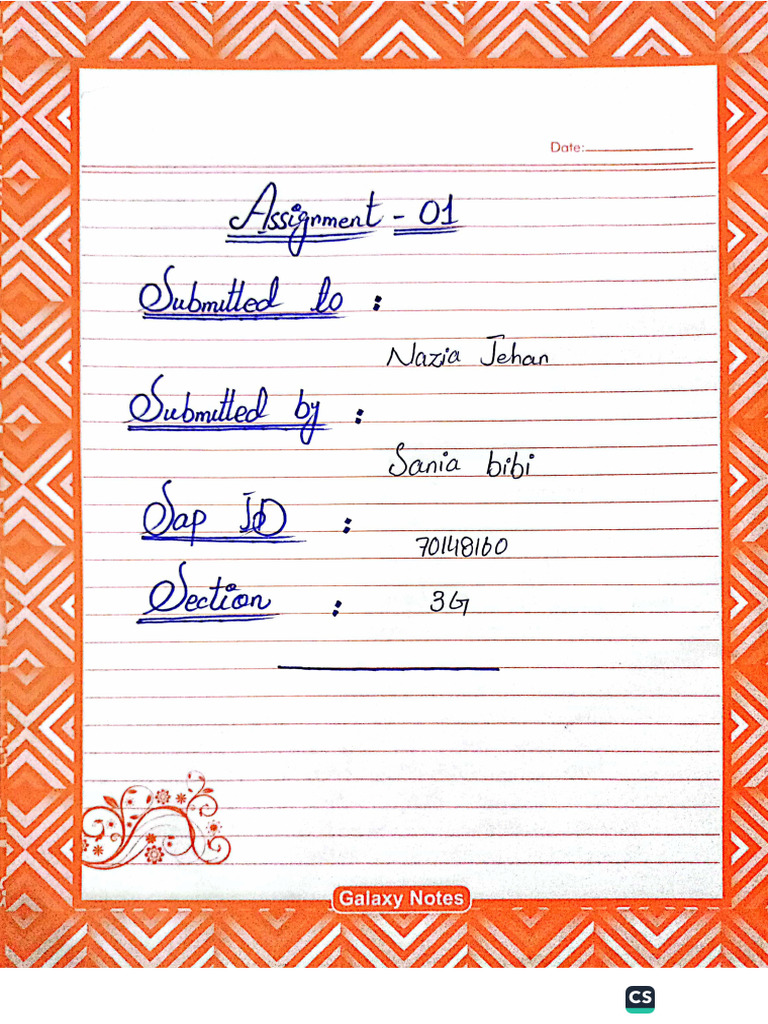 Date:
Assignment - 01
Submitted to :
Nazia Jehan
Submitted by :
Sania bibi
Sap ID :
70148160
Section : 3G
Galaxy Notes
CS